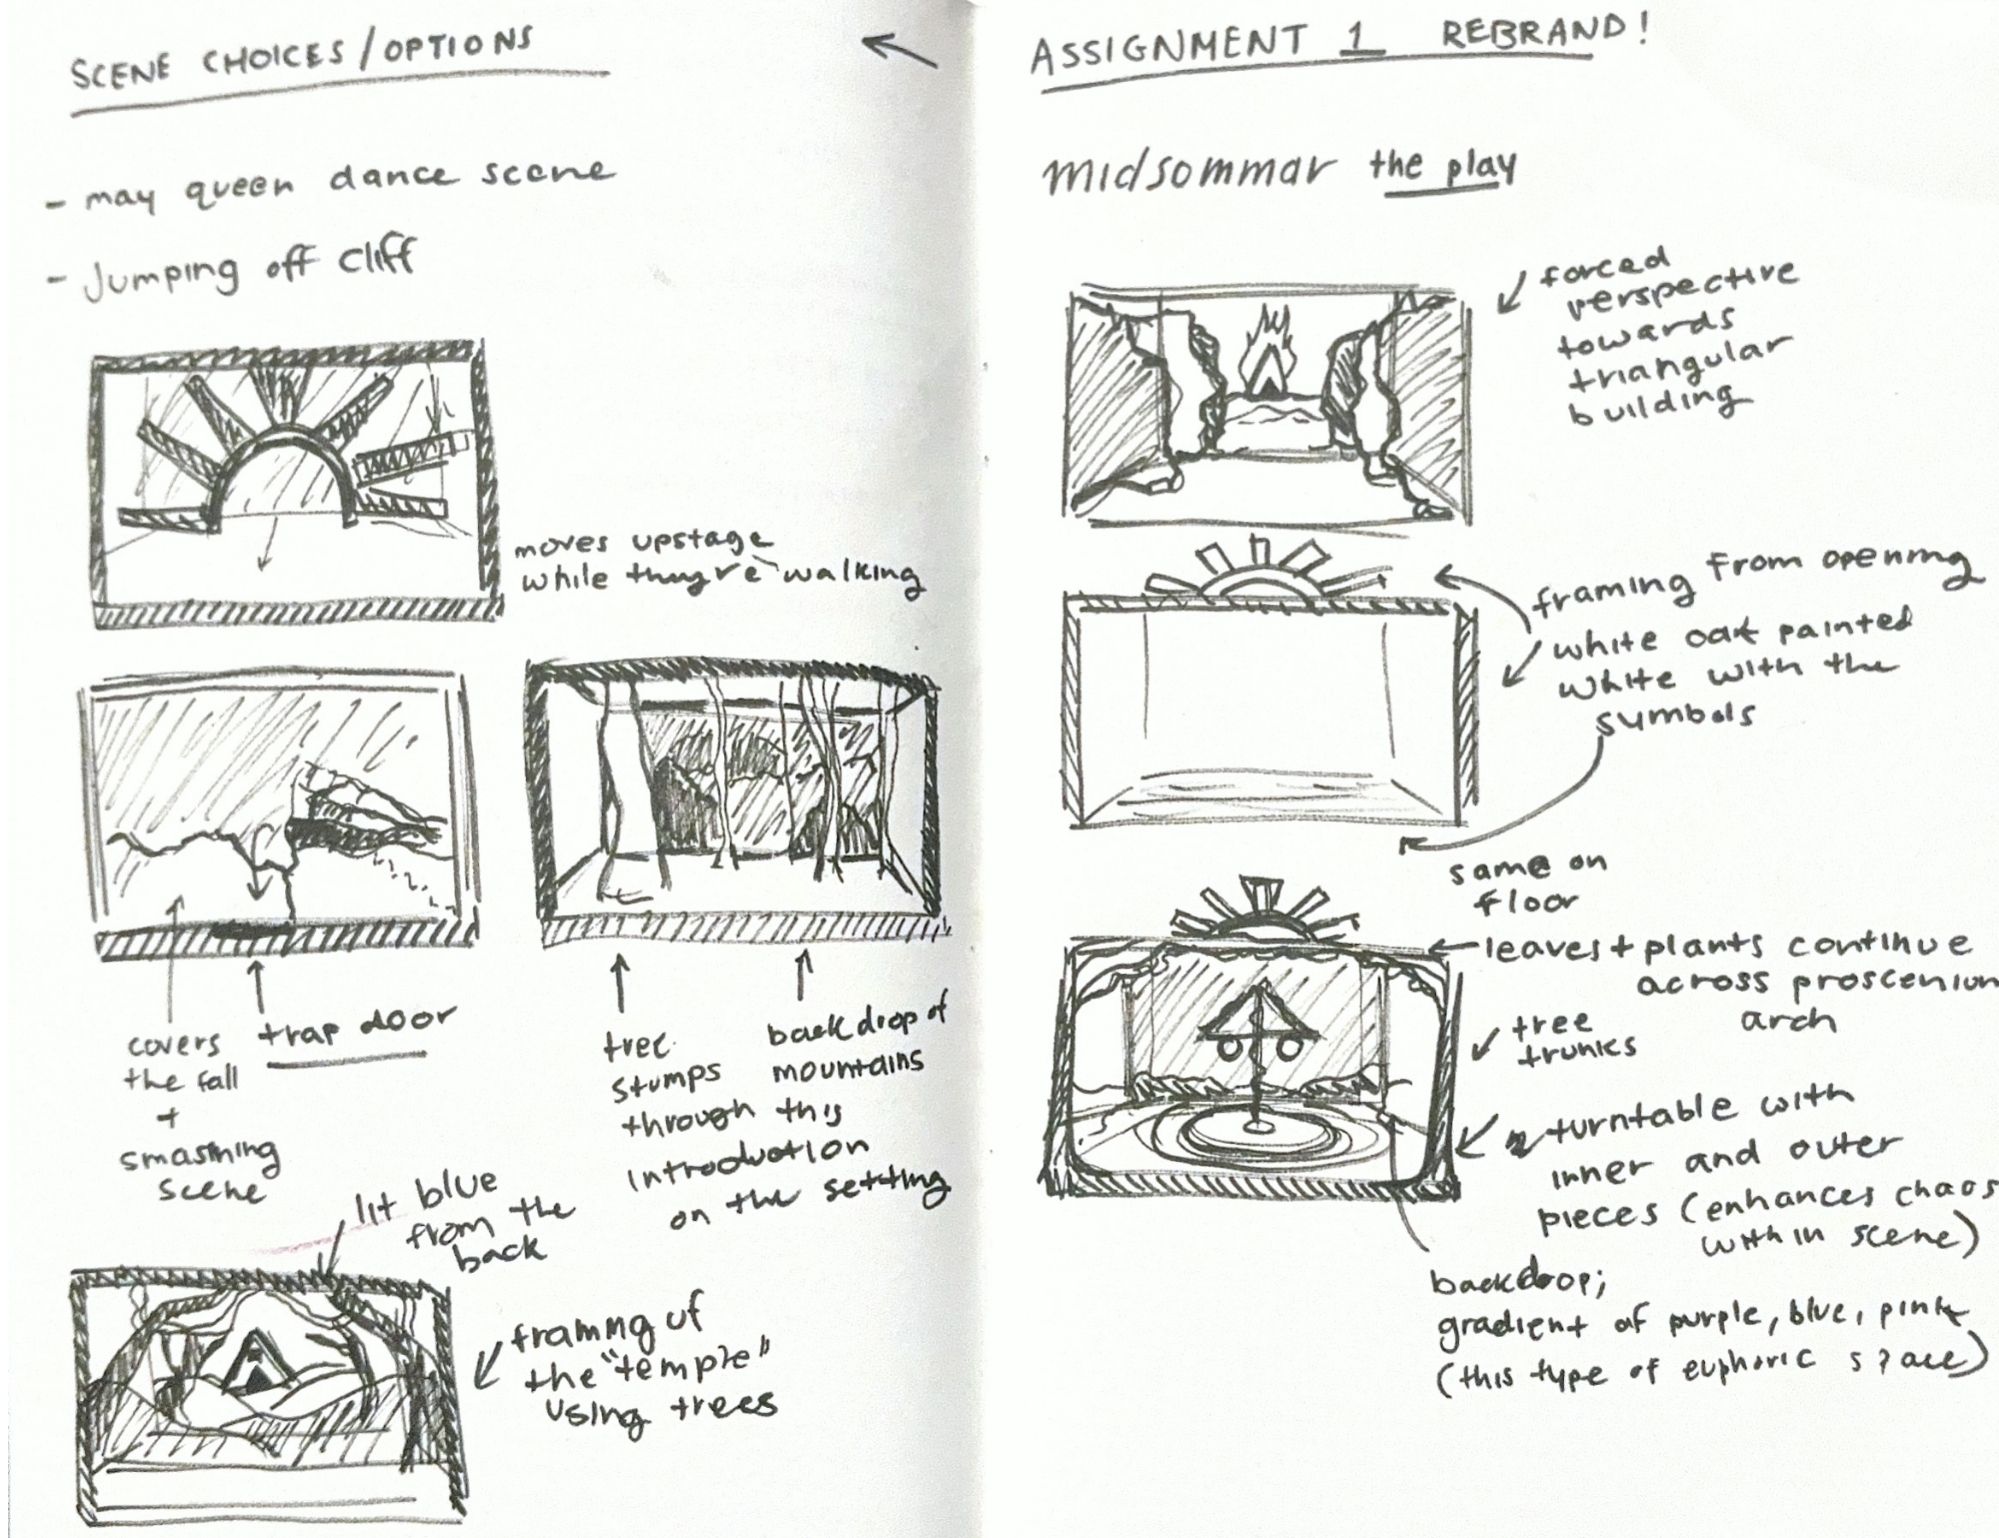 SCENE CHOICES/OPTIONS
- may queen dance scene
- Jumping off cliff
moves upstage
while they're walking
covers
the fall
+
smashing
scene
trap door
tree
stumps
through this
introduction
on the setting
backdrop of
mountains
lit blue
from the
back
framing of
the "temple"
using trees
ASSIGNMENT 1 REBRAND!
midsommar the play
forced
perspective
towards
triangular
building
framing from opening
white oak painted
white with the
symbols
same on
floor
leaves + plants continue
across proscenium
arch
tree
trunks
turntable with
inner and outer
pieces (enhances chaos
within scene)
backdrop;
gradient of purple, blue, pink
(this type of euphoric space)